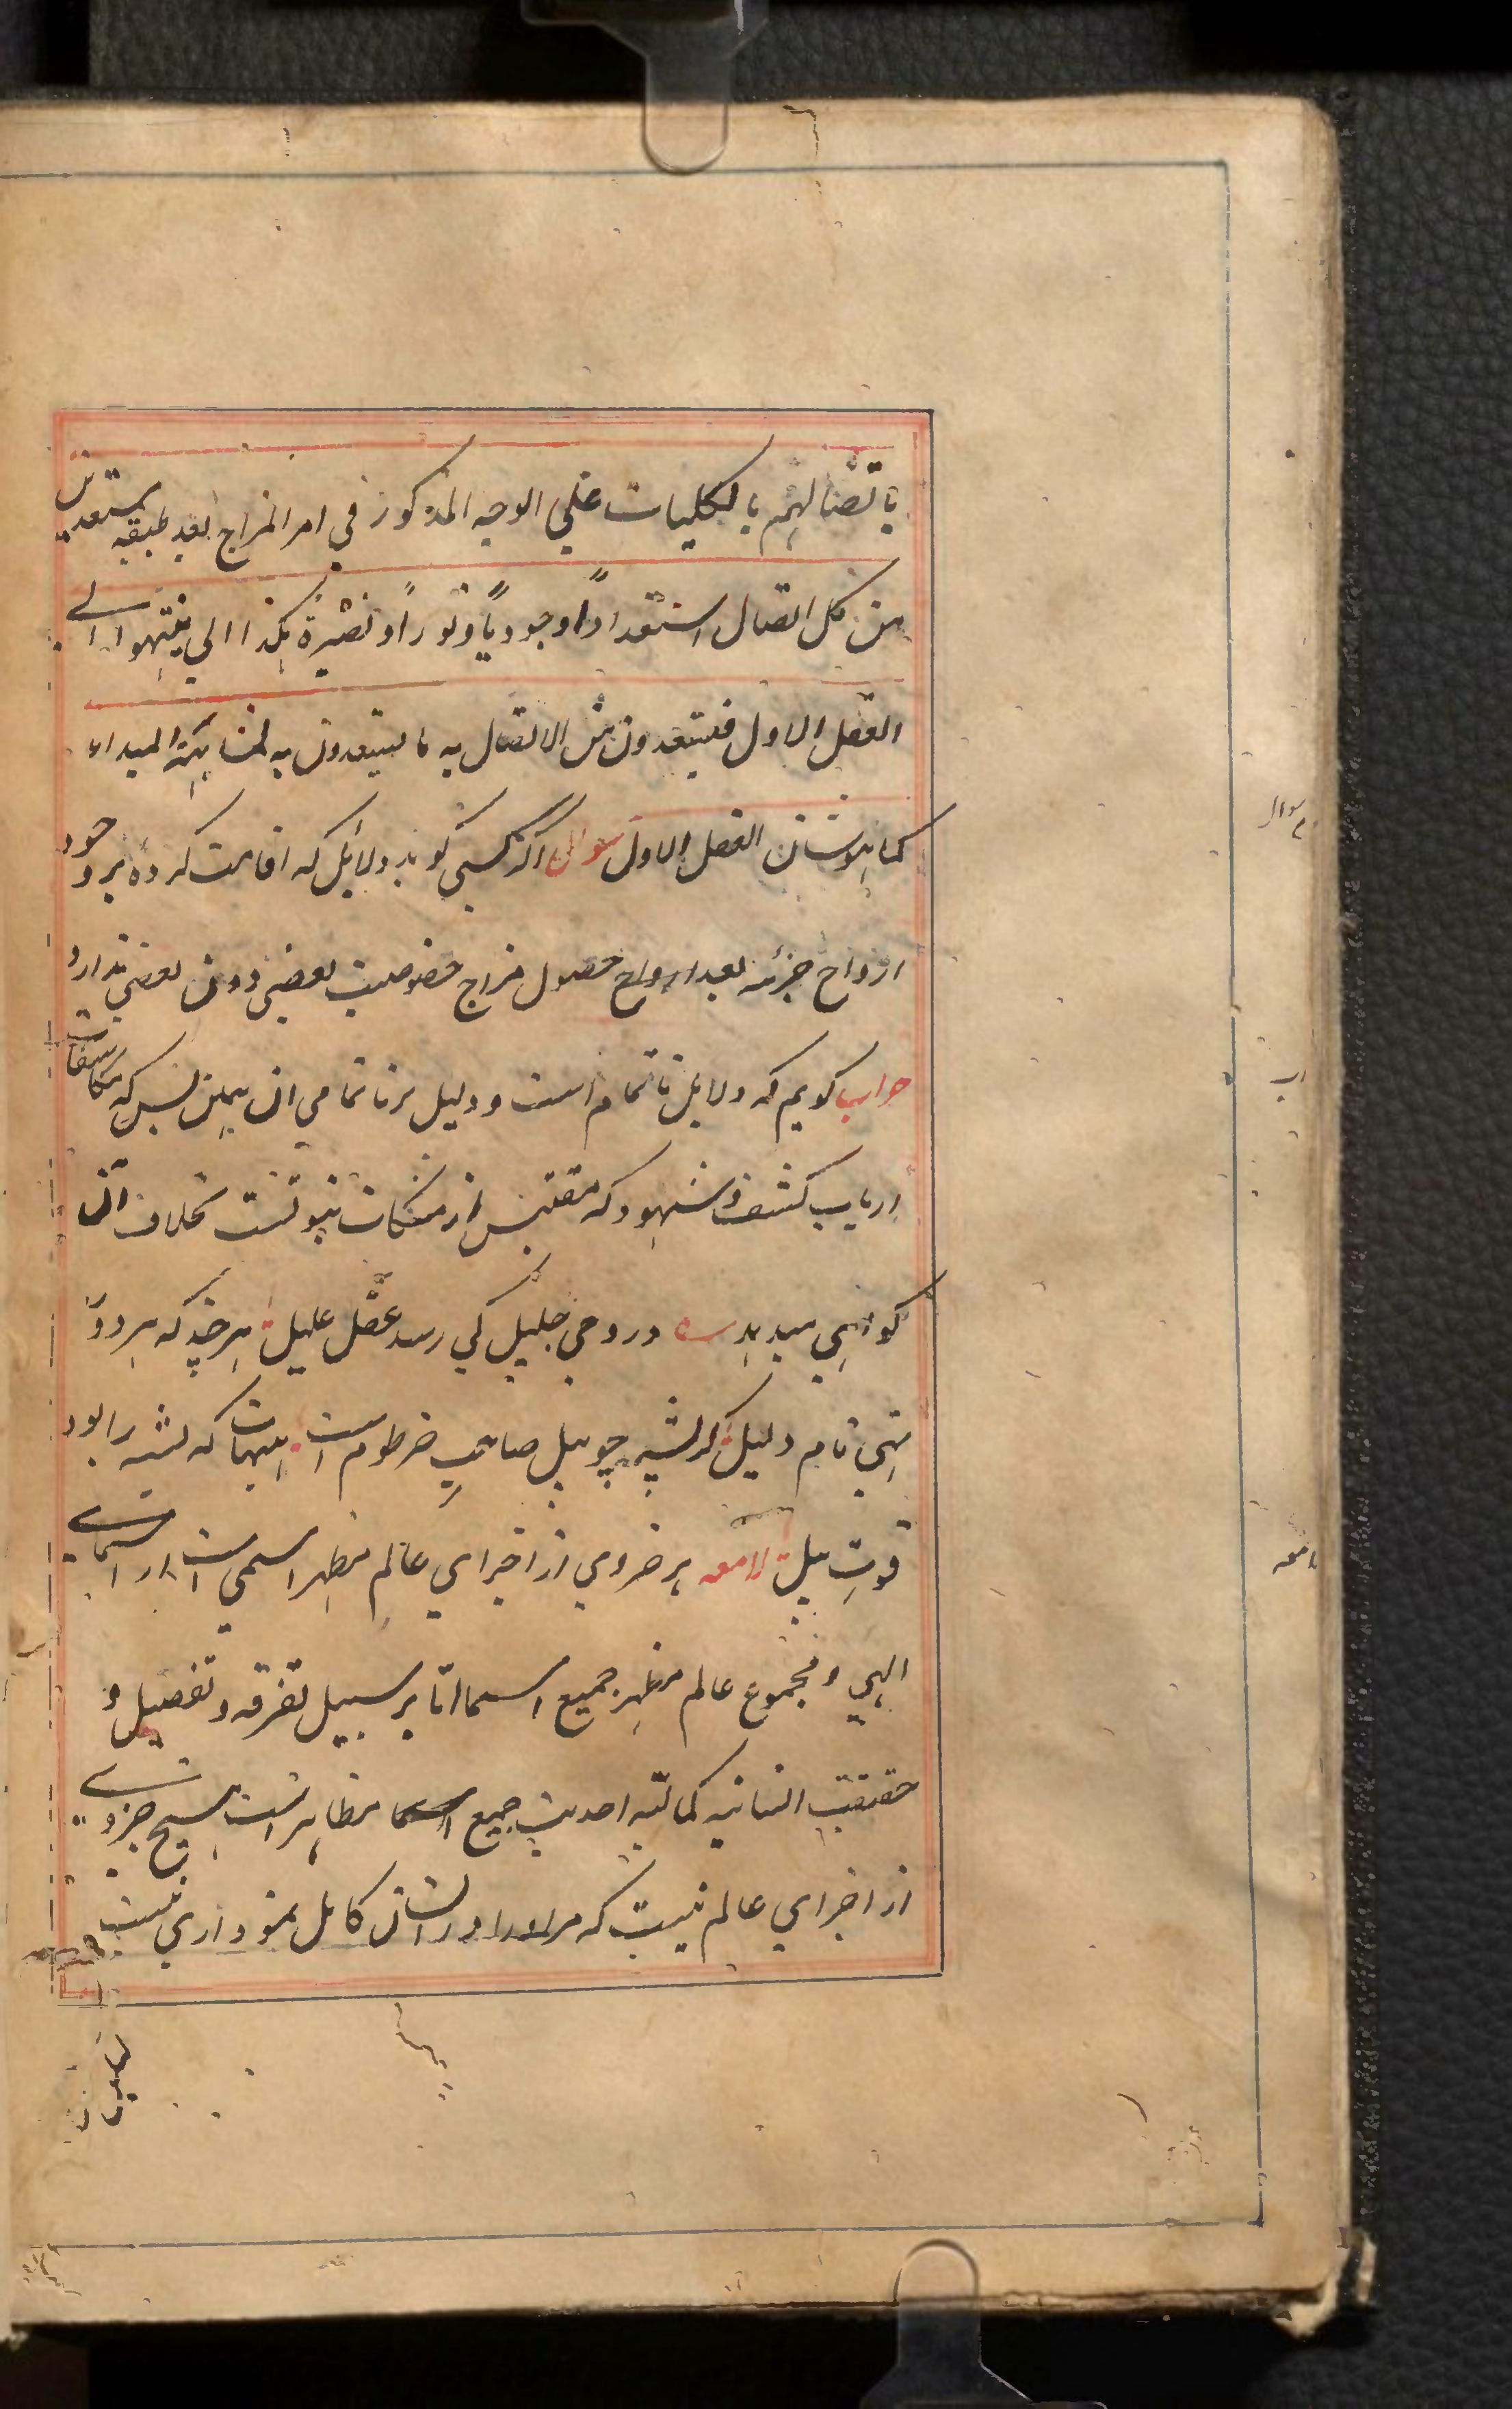 باتصالهم بالكليات علي الوجه المذكور في امر المزاج بعد طبقه يستعدون
من كل اتصال استعداداً وجودياً و نوراً و بصيرة هكذا الي ينتهوا الي
العقل الاول فيستعدون من الاتصال به ما يستعدون به لمشاهدة المبداء
كما هو شان العقل الاول سوال اگر كسي كويد دلائل كه اقامت كرده بر وجود
ارواح جزئه بعد ارواح حصول مزاج خصوصيت بعضي دون بعضي ندارد
جواب كويم كه دلايل ناتمام است و دليل بر ناتمامي ان همين بس كه مكاشفات
ارباب كشف و شهود كه مقتبس از مشكات نبوتست بخلاف آن
كواهي ميدهد در وحي جليل كي رسد عقل عليل هرچند كه هر دو را
نهي نام دليل گر پشه چو پيل صاحب خرطوم است هيهات كه پشه را بود
قوت پيل لامعه هر جزوي از اجزاي عالم مظهر اسمي است از اسماي
الهي و مجموع عالم مظهر جميع اسما امّا بر سبيل تفرقه و تفصيل و
حقيقت انسانيه كماليه احديت جميع اسما مظاهر است هيچ جزوي
از اجزاي عالم نيست كه مر او را در انسان كامل نموداري نيست
سوال
لامعه